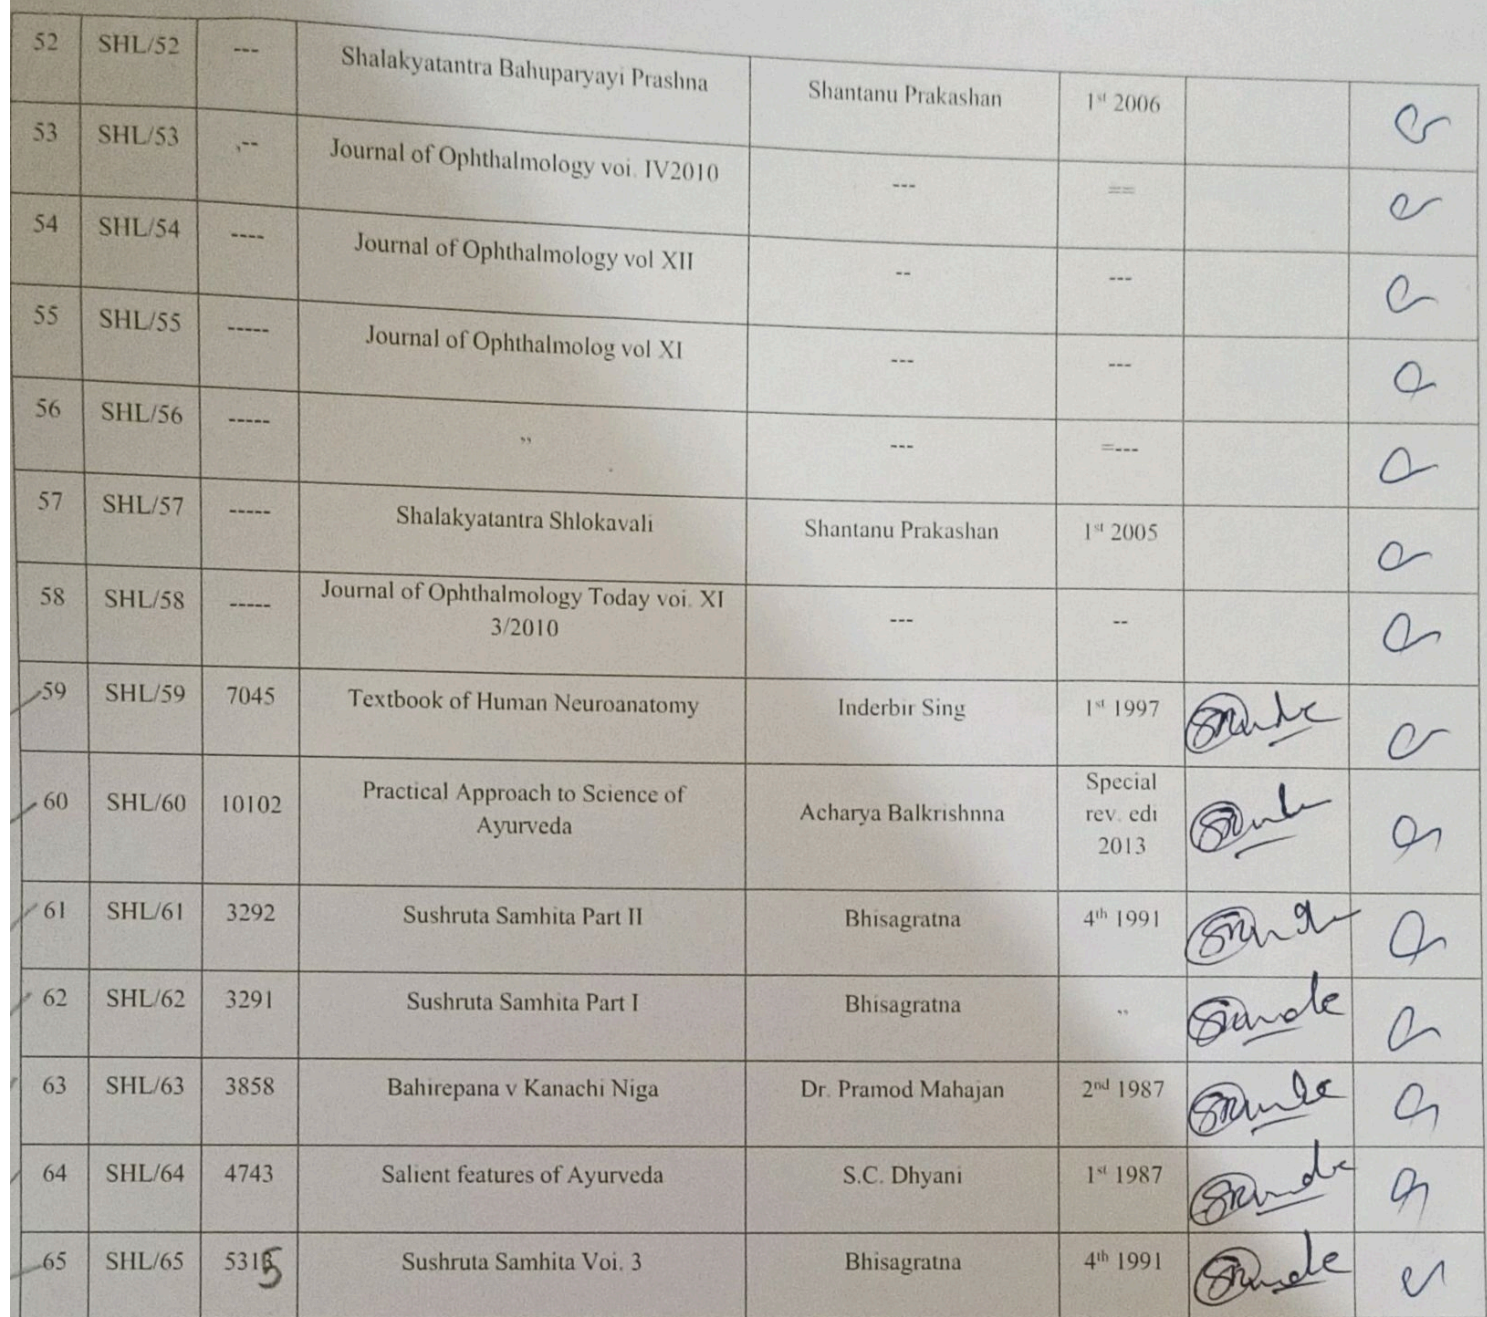 52 SHL/52 --- Shalakyatantra Bahuparyayi Prashna Shantanu Prakashan 1st 2006
53 SHL/53 ,-- Journal of Ophthalmology voi. IV2010 --- ==
54 SHL/54 ---- Journal of Ophthalmology vol XII -- ---
55 SHL/55 ----- Journal of Ophthalmolog vol XI --- ---
56 SHL/56 ----- ,, --- =---
57 SHL/57 ----- Shalakyatantra Shlokavali Shantanu Prakashan 1st 2005
58 SHL/58 ----- Journal of Ophthalmology Today voi. XI
3/2010 --- --
59 SHL/59 7045 Textbook of Human Neuroanatomy Inderbir Sing 1st 1997
60 SHL/60 10102 Practical Approach to Science of
Ayurveda Acharya Balkrishnna Special
rev. edi
2013
61 SHL/61 3292 Sushruta Samhita Part II Bhisagratna 4th 1991
62 SHL/62 3291 Sushruta Samhita Part I Bhisagratna ,,
63 SHL/63 3858 Bahirepana v Kanachi Niga Dr. Pramod Mahajan 2nd 1987
64 SHL/64 4743 Salient features of Ayurveda S.C. Dhyani 1st 1987
65 SHL/65 5315 Sushruta Samhita Voi. 3 Bhisagratna 4th 1991